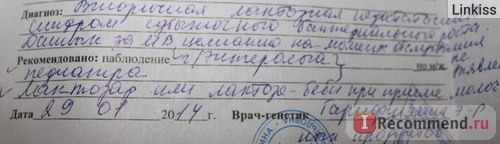 Linkiss
Диагноз: Вторичная лактазная недостаточн
синдром избыточного бактериального роста.
Данных за МВ целиакию на момент обследования не
Рекомендовано: наблюдение г/энтеролога по м/ж выявлено
педиатра
Лактазар или лактаза-беби при приеме молоч
Дата 29 01 2014 г. Врач-генетик
IRecommend.ru